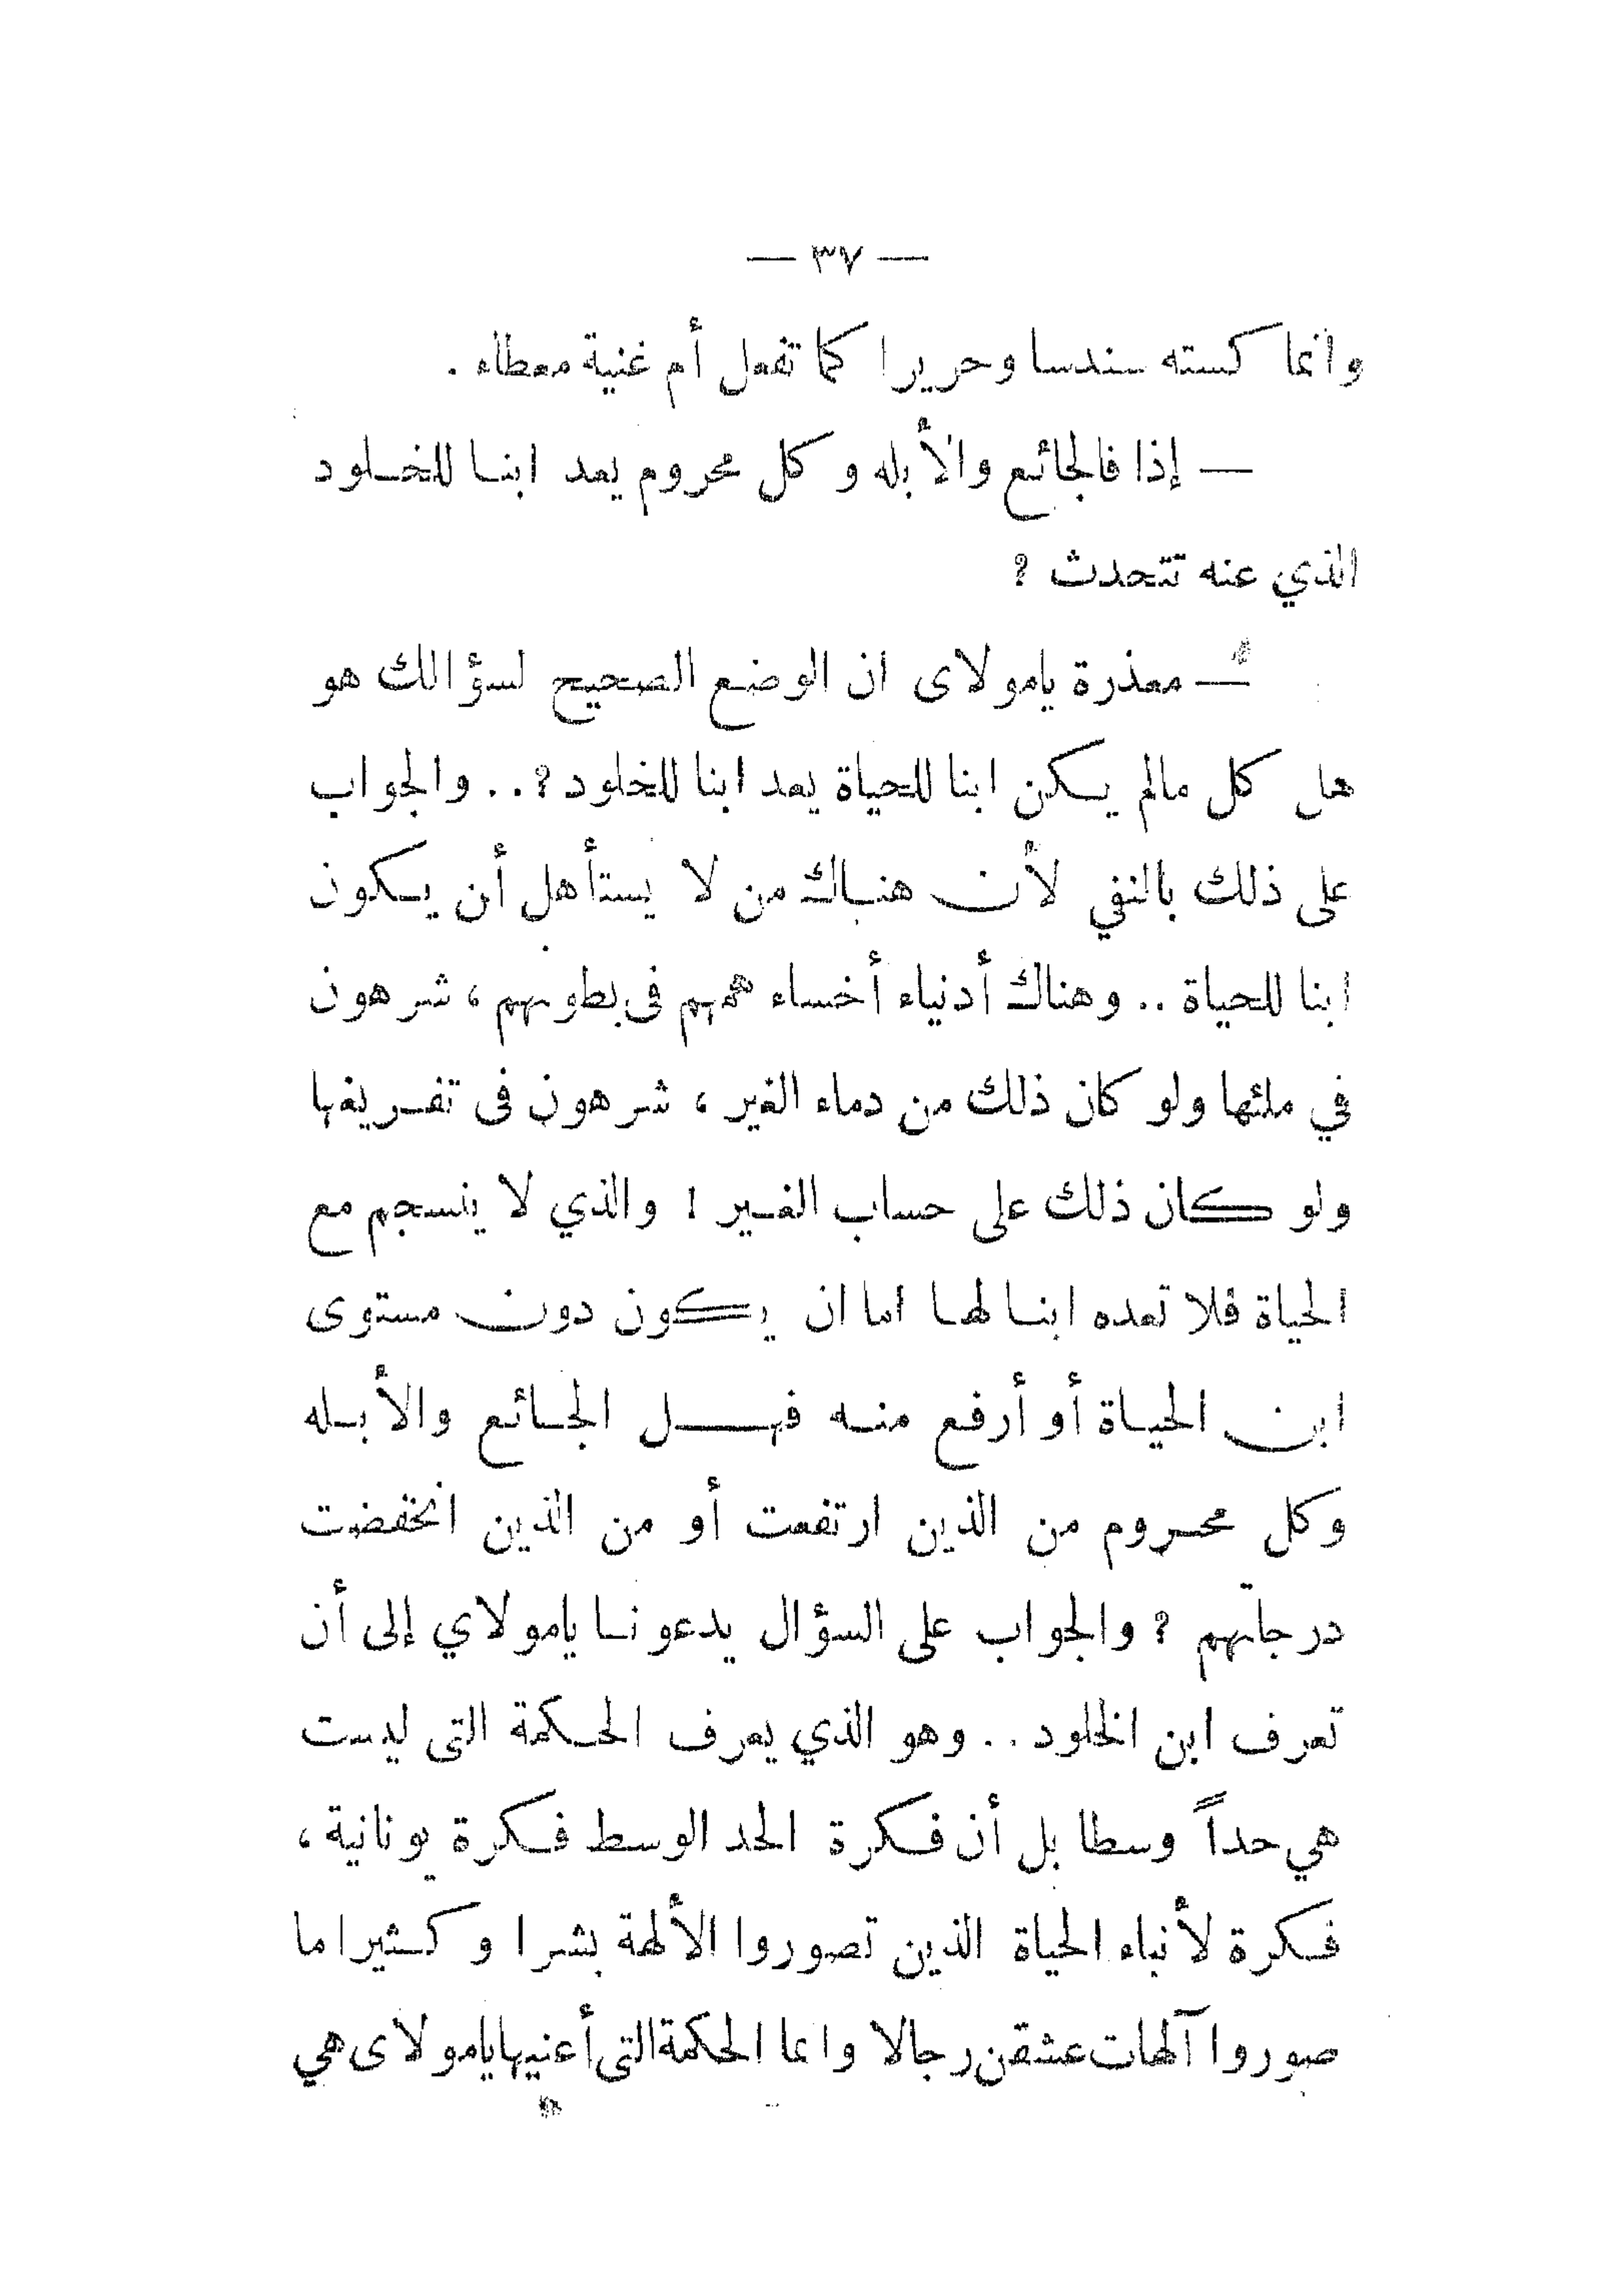 — ٣٧ —
وانما كسته سندسا وحريرا كما تفعل أم غنية معطاء .
— إذا فالجائع والأبله وكل محروم يعد ابنا للخلود
الذي عنه تتحدث ؟
— معذرة يامولاى ان الوضع الصحيح لسؤالك هو
هل كل مالم يكن ابنا للحياة يعد ابنا للخلود ؟ . . والجواب
على ذلك بالنفي لأن هناك من لا يستأهل أن يكون
ابنا للحياة .. وهناك أدنياء أخساء همهم فى بطونهم ، شرهون
في ملئها ولو كان ذلك من دماء الغير ، شرهون فى تفريغها
ولو كان ذلك على حساب الغير ! والذي لا ينسجم مع
الحياة فلا تعده ابنا لها اما ان يكون دون مستوى
ابن الحياة أو أرفع منه فهل الجائع والأبله
وكل محروم من الذين ارتفعت أو من الذين انخفضت
درجاتهم ؟ والجواب على السؤال يدعونا يامولاي إلى أن
تعرف ابن الخلود . . وهو الذي يعرف الحكمة التى ليست
هي حداً وسطا بل أن فكرة الحد الوسط فكرة يونانية ،
فكرة لأنباء الحياة الذين تصوروا الألهة بشرا وكثيرا ما
صوروا آلهات عشقن رجالا وانما الحكمة التى أعنيها يامولاى هي